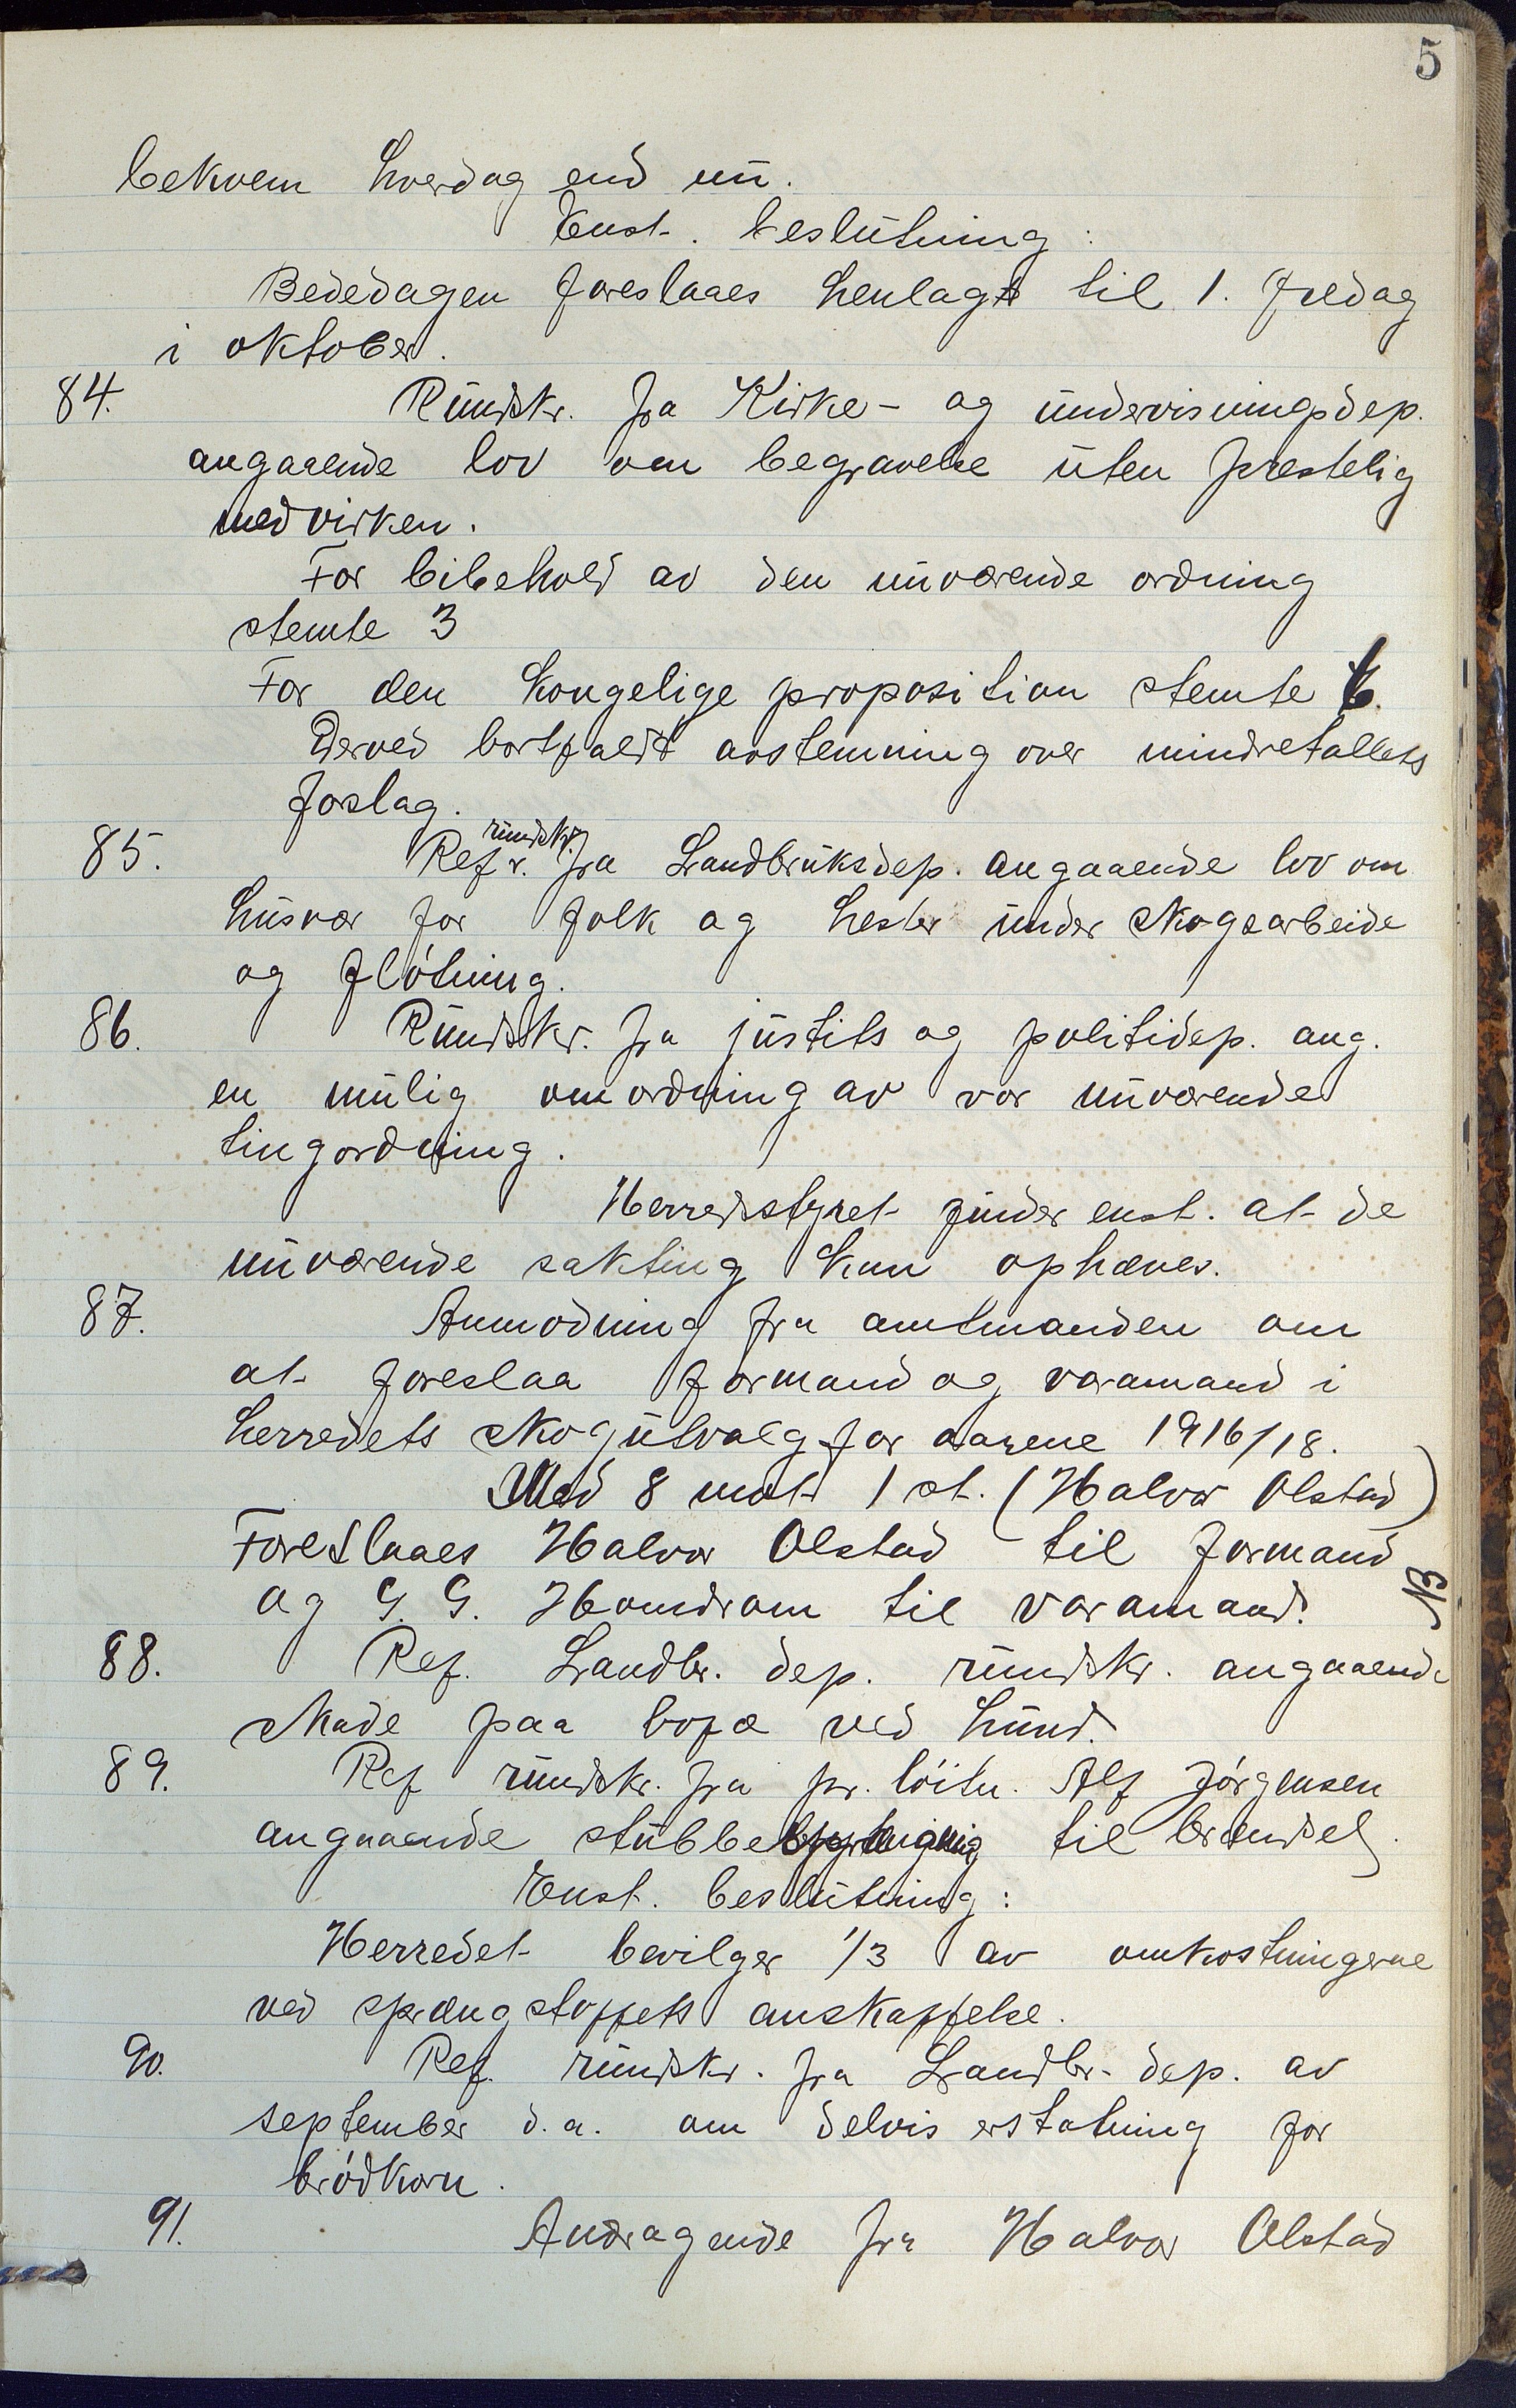 5
bekvem hverdag end nu.
Enst. beslutning:
Bededagen foreslaaes henlagt til 1. fredag
i oktober.
84. Rundskr. fra Kirke- og undervisningsdep.
angaaende lov om begravelse uten prestelig
medvirken.
For bibehold av den nuværende ordning
stemte 3
For den kongelige proposition stemte 6.
Derved bortfaldt avstemning over mindretallets
forslag.
rundskr.
85. Ref. fra Landbruksdep. angaaende lov om
husvær for folk og hester under skogsarbeide
og fløtning.
86. Rundskr. fra justits og politidep. ang.
en mulig omordning av vor nuværende
tingordning.
Herredsstyret finder enst. at de
nuværende sakting kun ophæves.
87. Anmodning fra amtmanden om
at foreslaa formand og varamand i
herredets skogutvalg for aarene 1916/18.
Med 8 mot 1 st. (Halvor Olstad)
Foreslaaes Halvor Olstad til formand
og G. G. Homdrom til varamand.
NB
88. Ref. Landbr. dep. rundskr. angaaende
skade paa bufæ ved hund.
89. Ref rundskr. fra pr. löitn. Alf Jörgensen
angaaende stubbe til brændsel.
Enst. beslutning:
Herredet bevilger 1/3 av omkostningerne
ved sprængstoffets anskaffelse.
90. Ref. rundskr. fra Landbr. dep. av
september d.a. om delvis erstatning for
brödkorn.
91. Andragende fra Halvor Olstad